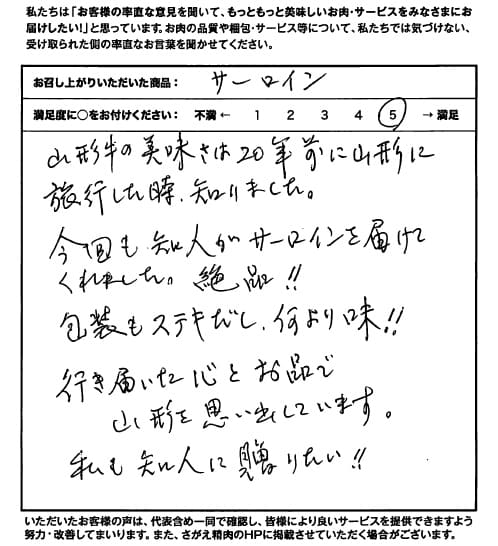 私たちは「お客様の率直な意見を聞いて、もっともっと美味しいお肉・サービスをみなさまにお
届けしたい！」と思っています。お肉の品質や梱包・サービス等について、私たちでは気づけない、
受け取られた側の率直なお言葉を聞かせてください。
お召し上がりいただいた商品： サーロイン
満足度に○をお付けください： 不満 ← 1 2 3 4 5 → 満足
山形牛の美味さは20年前に山形に
旅行した時、知りました。
今回も知人がサーロインを届けて
くれました。絶品!!
包装もステキだし、何より味!!
行き届いた心とお品で
山形を思い出しています。
私も知人に贈りたい!!
いただいたお客様の声は、代表含め一同で確認し、皆様により良いサービスを提供できますよう
努力・改善してまいります。また、さがえ精肉のHPに掲載させていただく場合がございます。